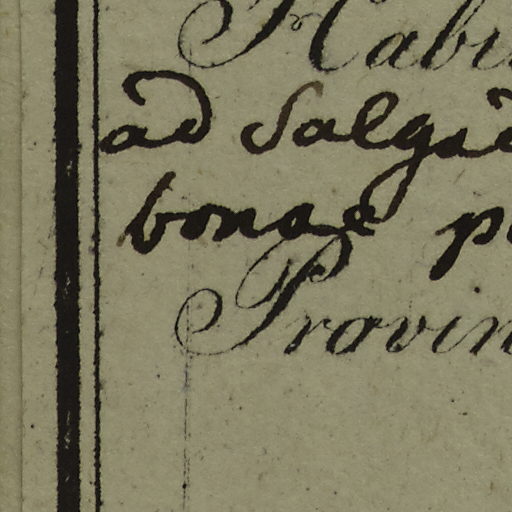 Habi
ad Salga
bonae p
Provin